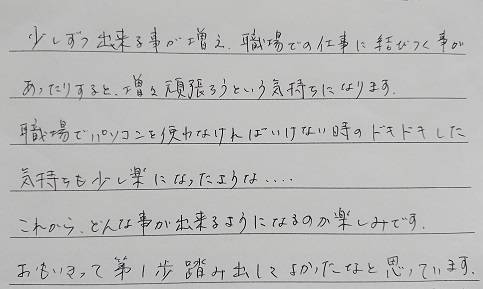 少しずつ出来る事が増え、職場での仕事に結びつく事が
あったりすると、増々頑張ろうという気持ちになります。
職場でパソコンを使わなければいけない時のドキドキした
気持ちも少し楽になったような‥‥
これから、どんな事が出来るようになるのか楽しみです。
おもいきって第1歩踏み出してよかったなと思っています。